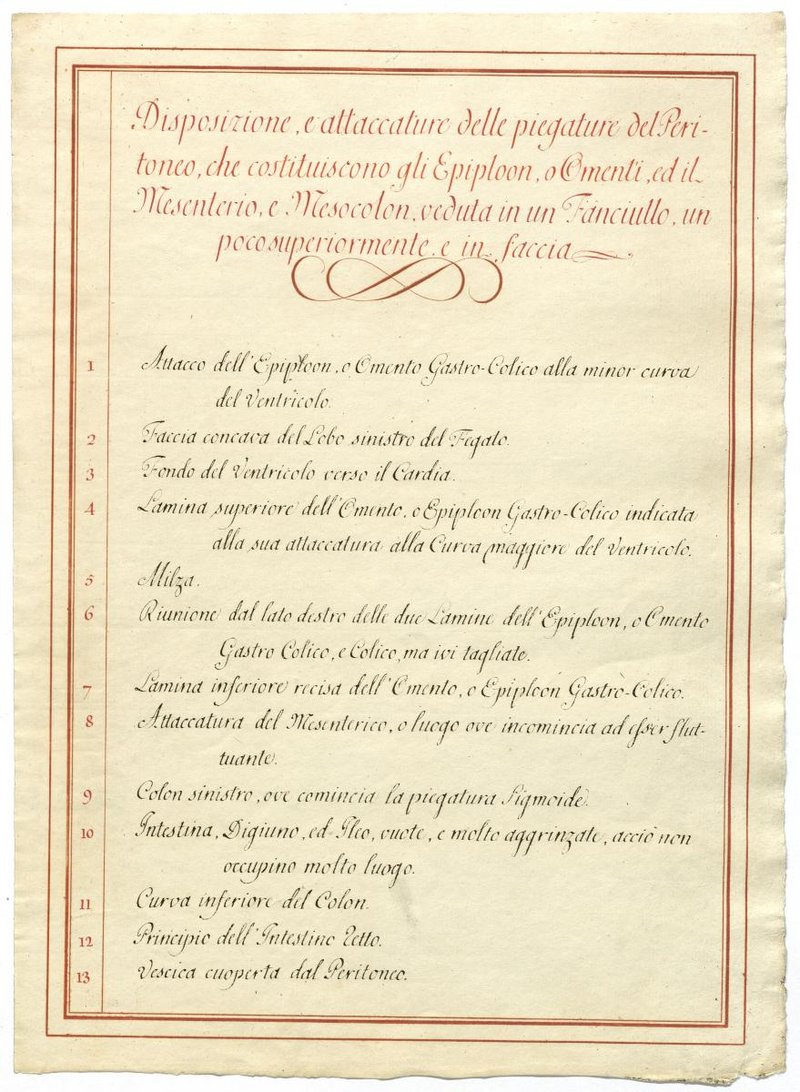 Disposizione, e attaccature delle piegature del Peri-
toneo, che costituiscono gli Epiploon, o Omenti, ed il
Mesenterio, e Mesocolon, veduta in un Fanciullo, un
poco superiormente, e in faccia
1 Attacco dell'Epiploon, o Omento Gastro-Colico alla minor curva
del Ventricolo.
2 Faccia concava del Lobo sinistro del Fegato.
3 Fondo del Ventricolo verso il Cardia.
4 Lamina superiore dell'Omento, o Epiploon Gastro-Colico indicata
alla sua attaccatura alla Curva maggiore del Ventricolo.
5 Milza.
6 Riunione dal lato destro delle due Lamine dell'Epiploon, o Omento
Gastro Colico, e Colico, ma ivi tagliate.
7 Lamina inferiore recisa dell'Omento, o Epiploon Gastro-Colico.
8 Attaccatura del Mesenterico, o luogo ove incomincia ad esser flut-
tuante.
9 Colon sinistro, ove comincia la piegatura Sigmoide.
10 Intestina, Digiuno, ed Ileo, vuote, e molto aggrinzate, acciò non
occupino molto luogo.
11 Curva inferiore del Colon.
12 Principio dell'Intestino Retto.
13 Vescica cuoperta dal Peritoneo.